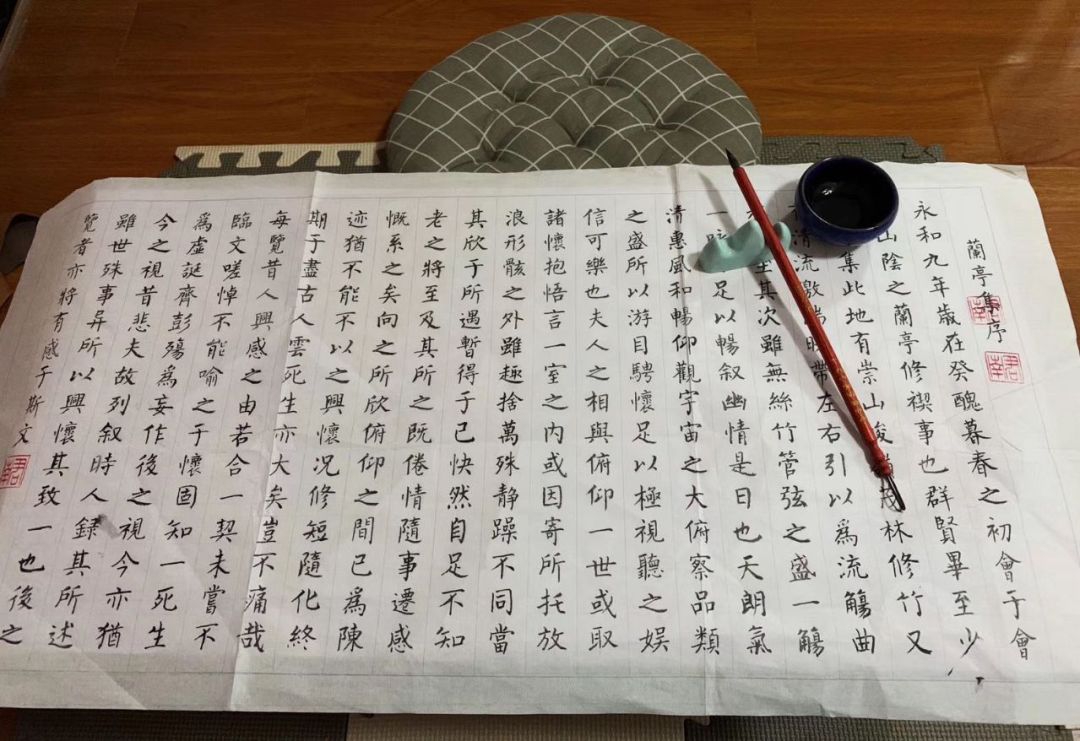 蘭亭集序
永和九年歲在癸醜暮春之初會于會
山陰之蘭亭修禊事也群賢畢至少
集此地有崇山峻茂林修竹又
清流激湍映帶左右引以爲流觴曲
坐其次雖無絲竹管弦之盛一觴
一足以暢叙幽情是日也天朗氣
清惠風和暢仰觀宇宙之大俯察品類
之盛所以游目騁懷足以極視聽之娱
信可樂也夫人之相與俯仰一世或取
諸懷抱悟言一室之内或因寄所托放
浪形骸之外雖趣捨萬殊静躁不同當
其欣于所遇暫得于己快然自足不知
老之將至及其所之既倦情隨事遷感
慨系之矣向之所欣俯仰之間已爲陳
迹猶不能不以之興懷况修短隨化終
期于盡古人雲死生亦大矣豈不痛哉
每覽昔人興感之由若合一契未嘗不
臨文嗟悼不能喻之于懷固知一死生
爲虛誕齊彭殤爲妄作後之視今亦猶
今之視昔悲夫故列叙時人録其所述
雖世殊事异所以興懷其致一也後之
覽者亦將有感于斯文